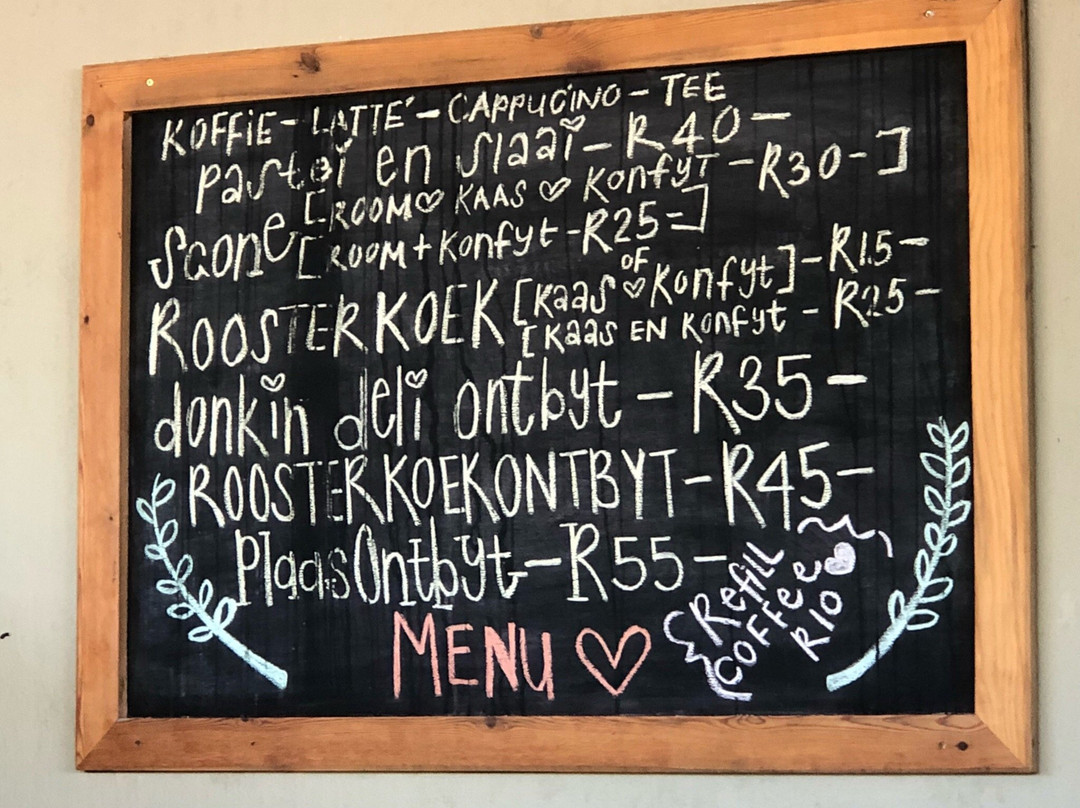 KOFFiE - LATTE´ - CAPPUCINO - TEE
Pastei en slaai - R40 -
Scone [ROOM♡ KAAS ♡ Konfyt - R30 - ]
[ROOM + Konfyt - R25 - ]
ROOSTERKOEK [Kaas OF ♡ Konfyt] - R15 -
[Kaas EN Konfyt - R25 -
donkin deli ontbyt - R35 -
ROOSTERKOEKONTBYT - R45 -
PlaasOntbyt - R55 -
MENU ♡
Refill
COFFee
R10